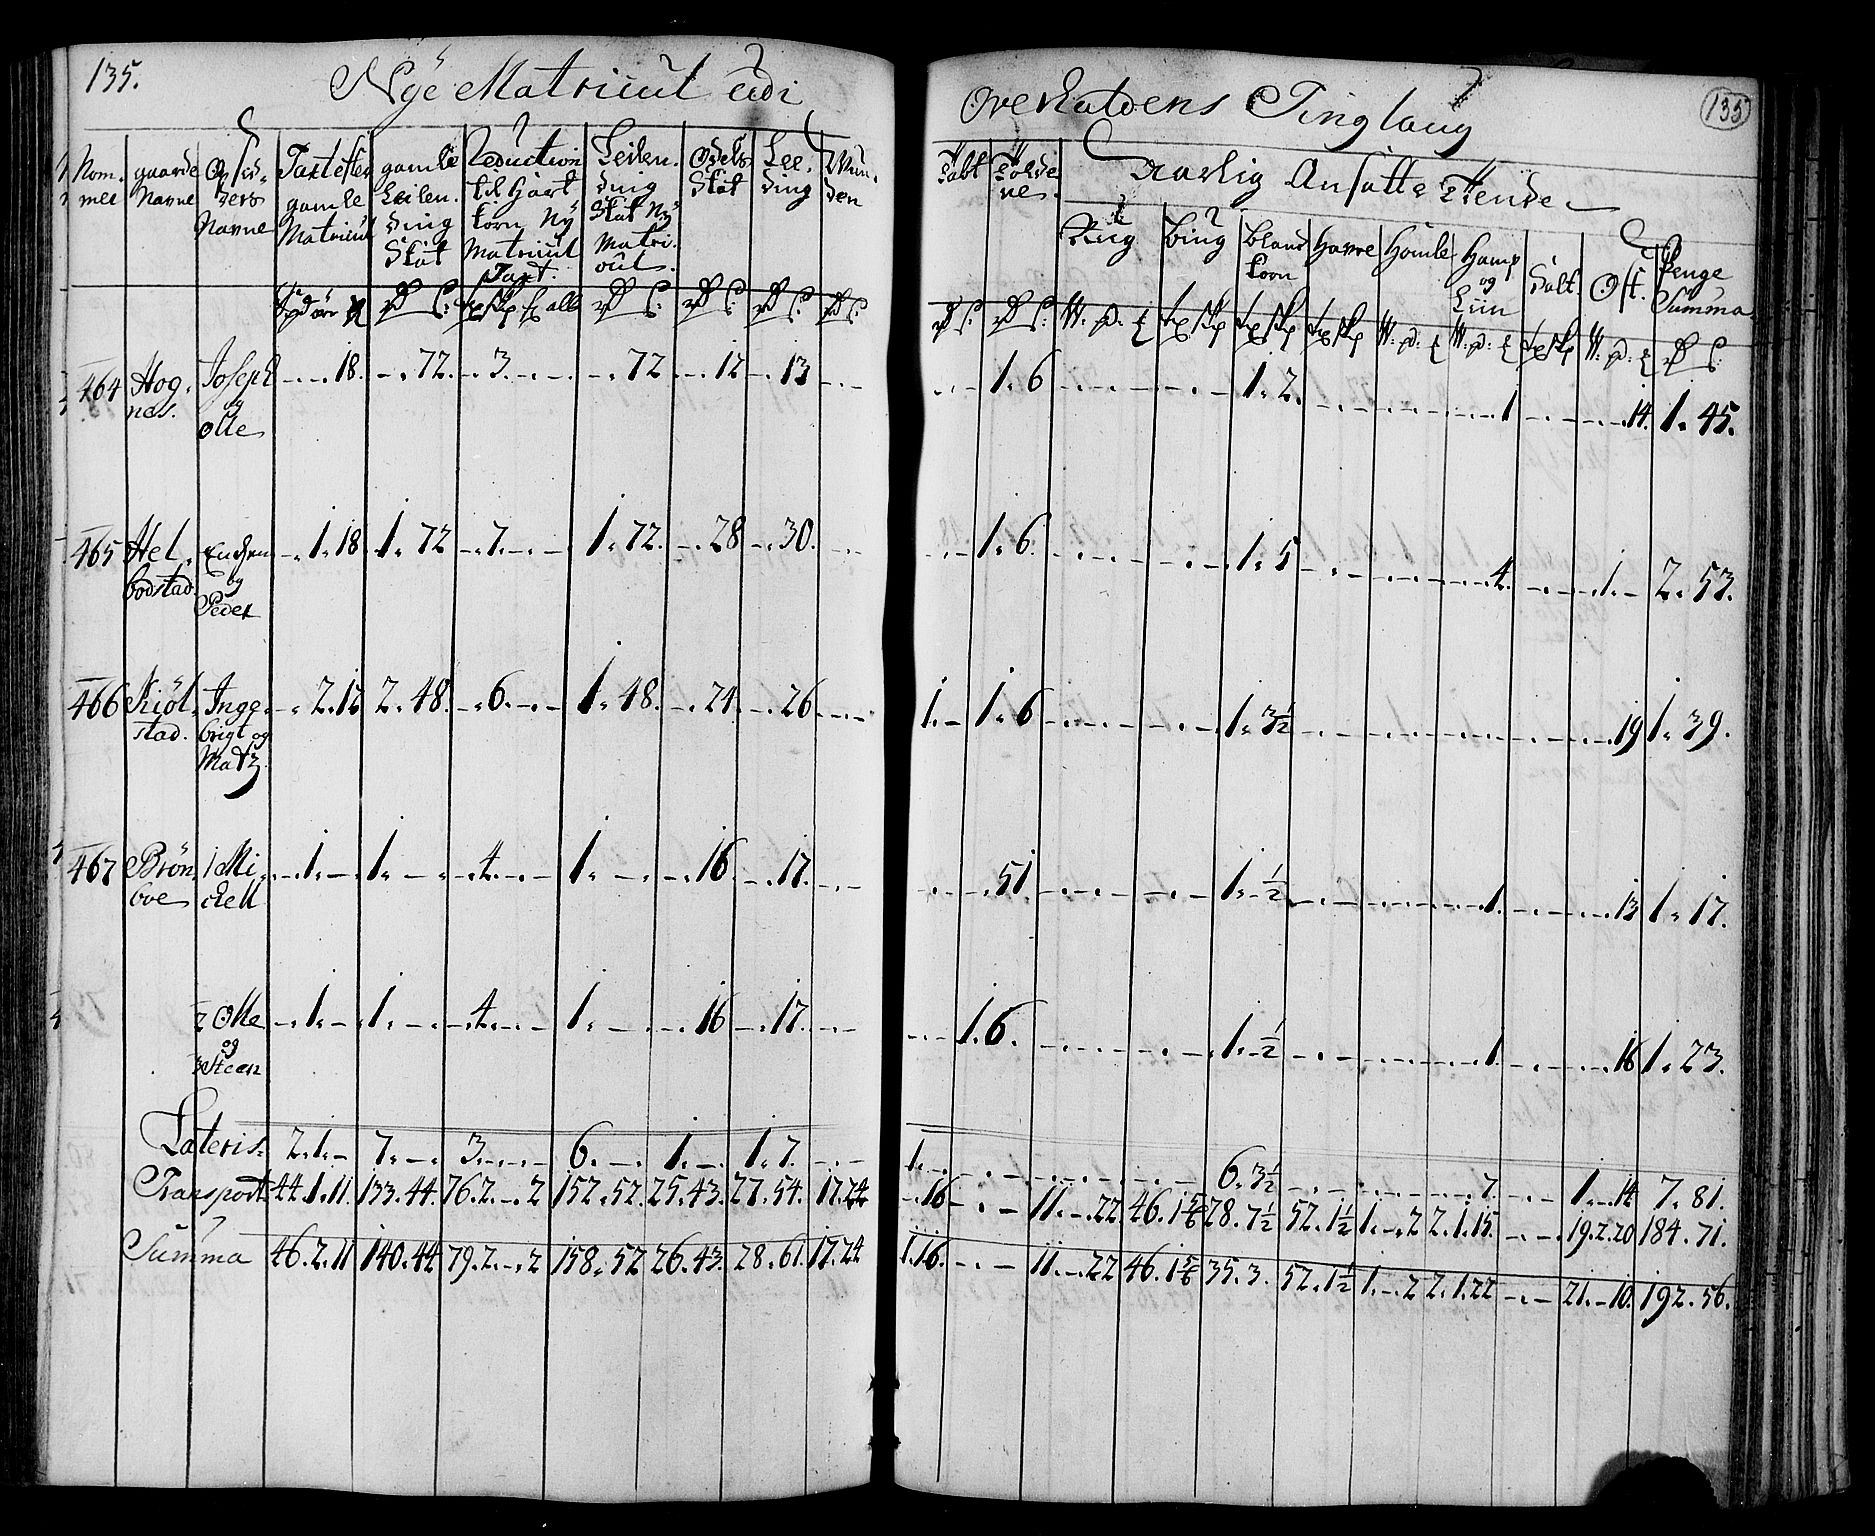 135.
Nye Matricul udi
Overhaldens Tinglaug
135
Nom-
mer
gaarde
Navne
Opsid-
ders
Navne
Taxt efter
gamle
Matricul
gamle
Leilen-
ding
Skat
Reduction
til Hart
korn Ny
Matricul
Taxt
Leilen-
ding
Skat Ny
Matri-
cul.
Odels
Skat
Lee-
ding
Mun-
den
Tabt
Tolde
ne.
Aarlig Ansatte Tiende
Rug
Bing
Bland
korn
Havre
Homle
Hamp
og
Liin
Salt.
Ost.
Penge
Summa
464 Hog- Joseph -.-.18. -.72. -.3.-.- -.72 -.12 -.13 -.- -.- 1.6 1.2. 1 14. 1.45.
nes. og
Olle
465 Hel- -.1.18 1.72 -.7.-.- 1.72. -.28 -.30. -.- -.- 1.6. 1.5 4. 1.- 2.53.
bodstad. og
Peder
466 Kiöl- Inge- -.2.12 2.48. -.6.-.- 1.48. -.24. -.26 -.- 1.- 1.6 1.3½ 19 1.39.
stad. brigt og
Matz.
467 Brön- 1 Mi- -.1.- 1.-.- -.4.-.- 1.-.- -.16. -.17. -.- -.- .51. 1.-½ 1. 13 1.17.
boe chell
2 Olle -.1.- 1.-.- -.4.-.- 1.-.- -.16 -.17. -.- -.- 1.6. 1.-½ 1 16 1.23.
og
3 Steen
Lateris. 2.1.- 7.-.- 3.-.-.- 6.-.- 1.-.- 1.7. -.- 1.-. 6.3½ 7. 1.-.14 7.81.
Transport 44.1.11. 133.44. 76.2.-.2 152.52. 25.43. 27.54. 17.24 -.16 -.- 11.-.22 46.1⅚ 28.7½ 52.1½ 1.-.2 2.1.15. -.- 19.2.20 184.71.
Summa 46.2.11 140.44 79.2.-.2 158.52 26.43. 28.61. 17.24 1.16. -.- 11.-.22 46.1⅚ 35.3. 52.1½ 1.-.2 2.1.22 -.- 21.-.10. 192.56.